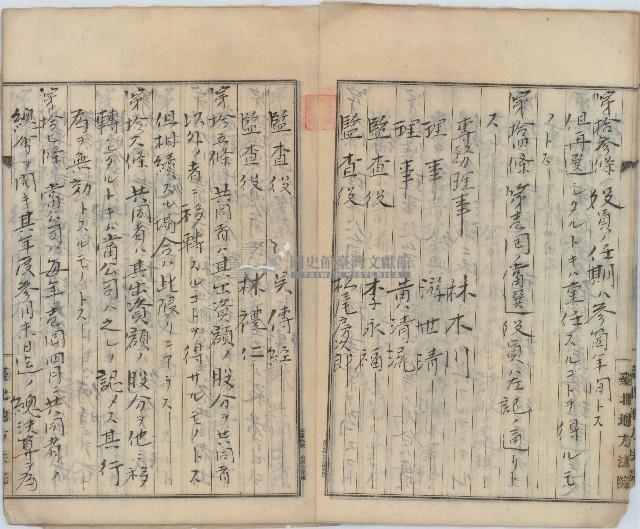 第拾參條 役員ノ任期ハ參箇年間トス
但再選シタルトキハ重任スルコトヲ得ルモ
ノトス
第拾四條 第壱囘ノ當選役員ハ左記ノ通リト
ス
專務理事 林木川
理事 游世清
理事 黄清混
監査役 李永福
監査役 松尾房次郎
監査役 吳傳經
監査役 林禮仁
第拾五條 共同者ハ其出資額ノ股分ヲ共同者
以外ノ者ニ移轉スルコトヲ得サルモノトス
但相續スル塲合ハ此限リニアラス
第拾六條 共同者ハ其出資額ノ股分ヲ他ニ移
轉シタルトキハ當公司ハ之レヲ認メス其行
爲ヲ無効トスルモノトス
第拾七條 當公司ハ每年壱囘四月共同者ノ
總會ヲ開キ其年度參月末日迄ノ總決算ヲ爲
臺北地方法院
國史館臺灣文獻館
TAIWAN HISTORICA